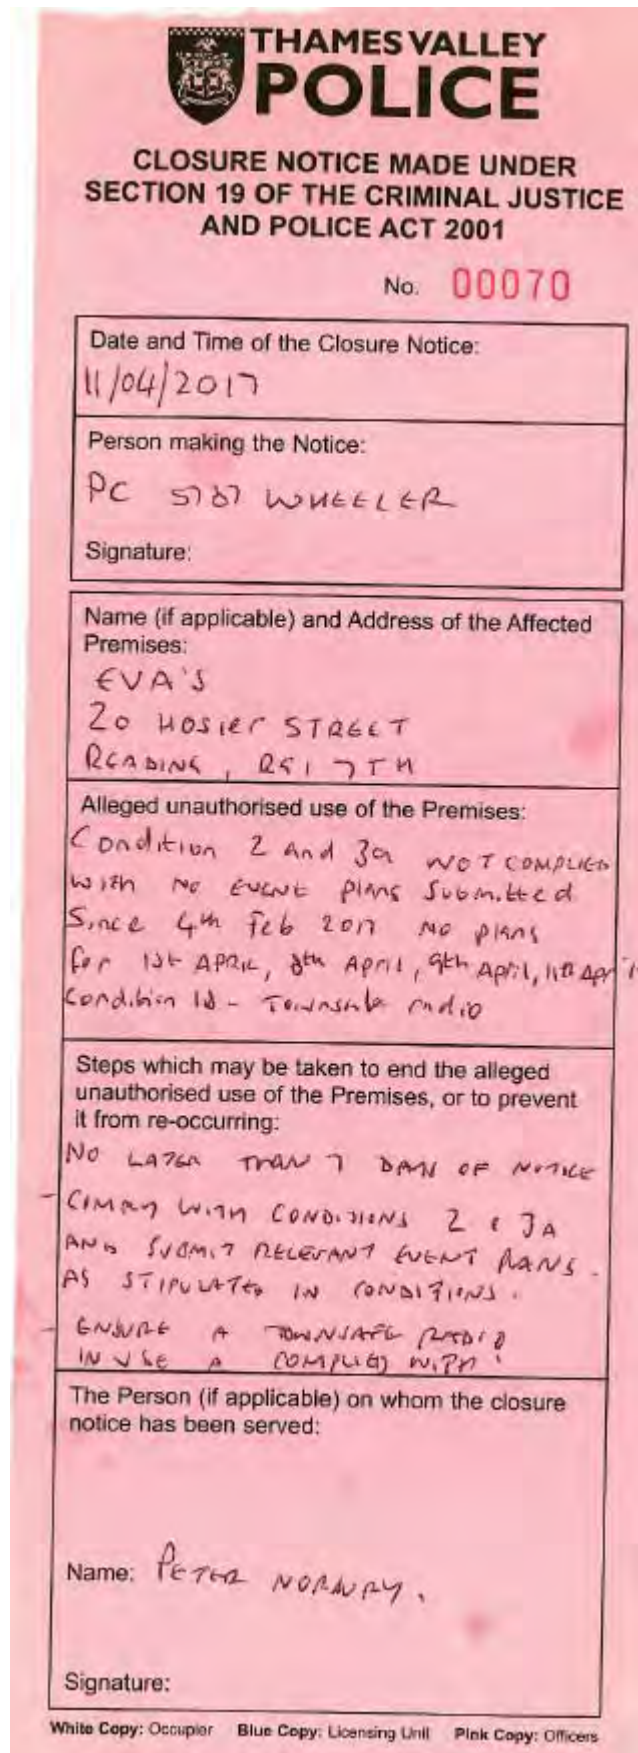 THAMES VALLEY
POLICE
CLOSURE NOTICE MADE UNDER
SECTION 19 OF THE CRIMINAL JUSTICE
AND POLICE ACT 2001
No. 00070
Date and Time of the Closure Notice:
11/04/2017
Person making the Notice:
PC 5787 WHEELER
Signature:
Name (if applicable) and Address of the Affected
Premises:
EVA'S
20 HOSIER STREET
READING, RG1 7TH
Alleged unauthorised use of the Premises:
Condition 2 and 3a NOT COMPLIED
with NO EVENT plans submitted
Since 4th Feb 2017 NO plans
for 1st APRIL, 8th April, 9th April, 11th April
Condition 1d - Townsafe radio
Steps which may be taken to end the alleged
unauthorised use of the Premises, or to prevent
it from re-occurring:
NO LATER THAN 7 DAYS OF NOTICE
- COMPLY WITH CONDITIONS 2 & 3A
AND SUBMIT RELEVANT EVENT PLANS.
AS STIPULATED IN CONDITIONS.
- ENSURE A TOWNSAFE RADIO
IN USE COMPLIED WITH.
The Person (if applicable) on whom the closure
notice has been served:
Name: PETER NORBURY.
Signature:
White Copy: Occupier Blue Copy: Licensing Unit Pink Copy: Officers